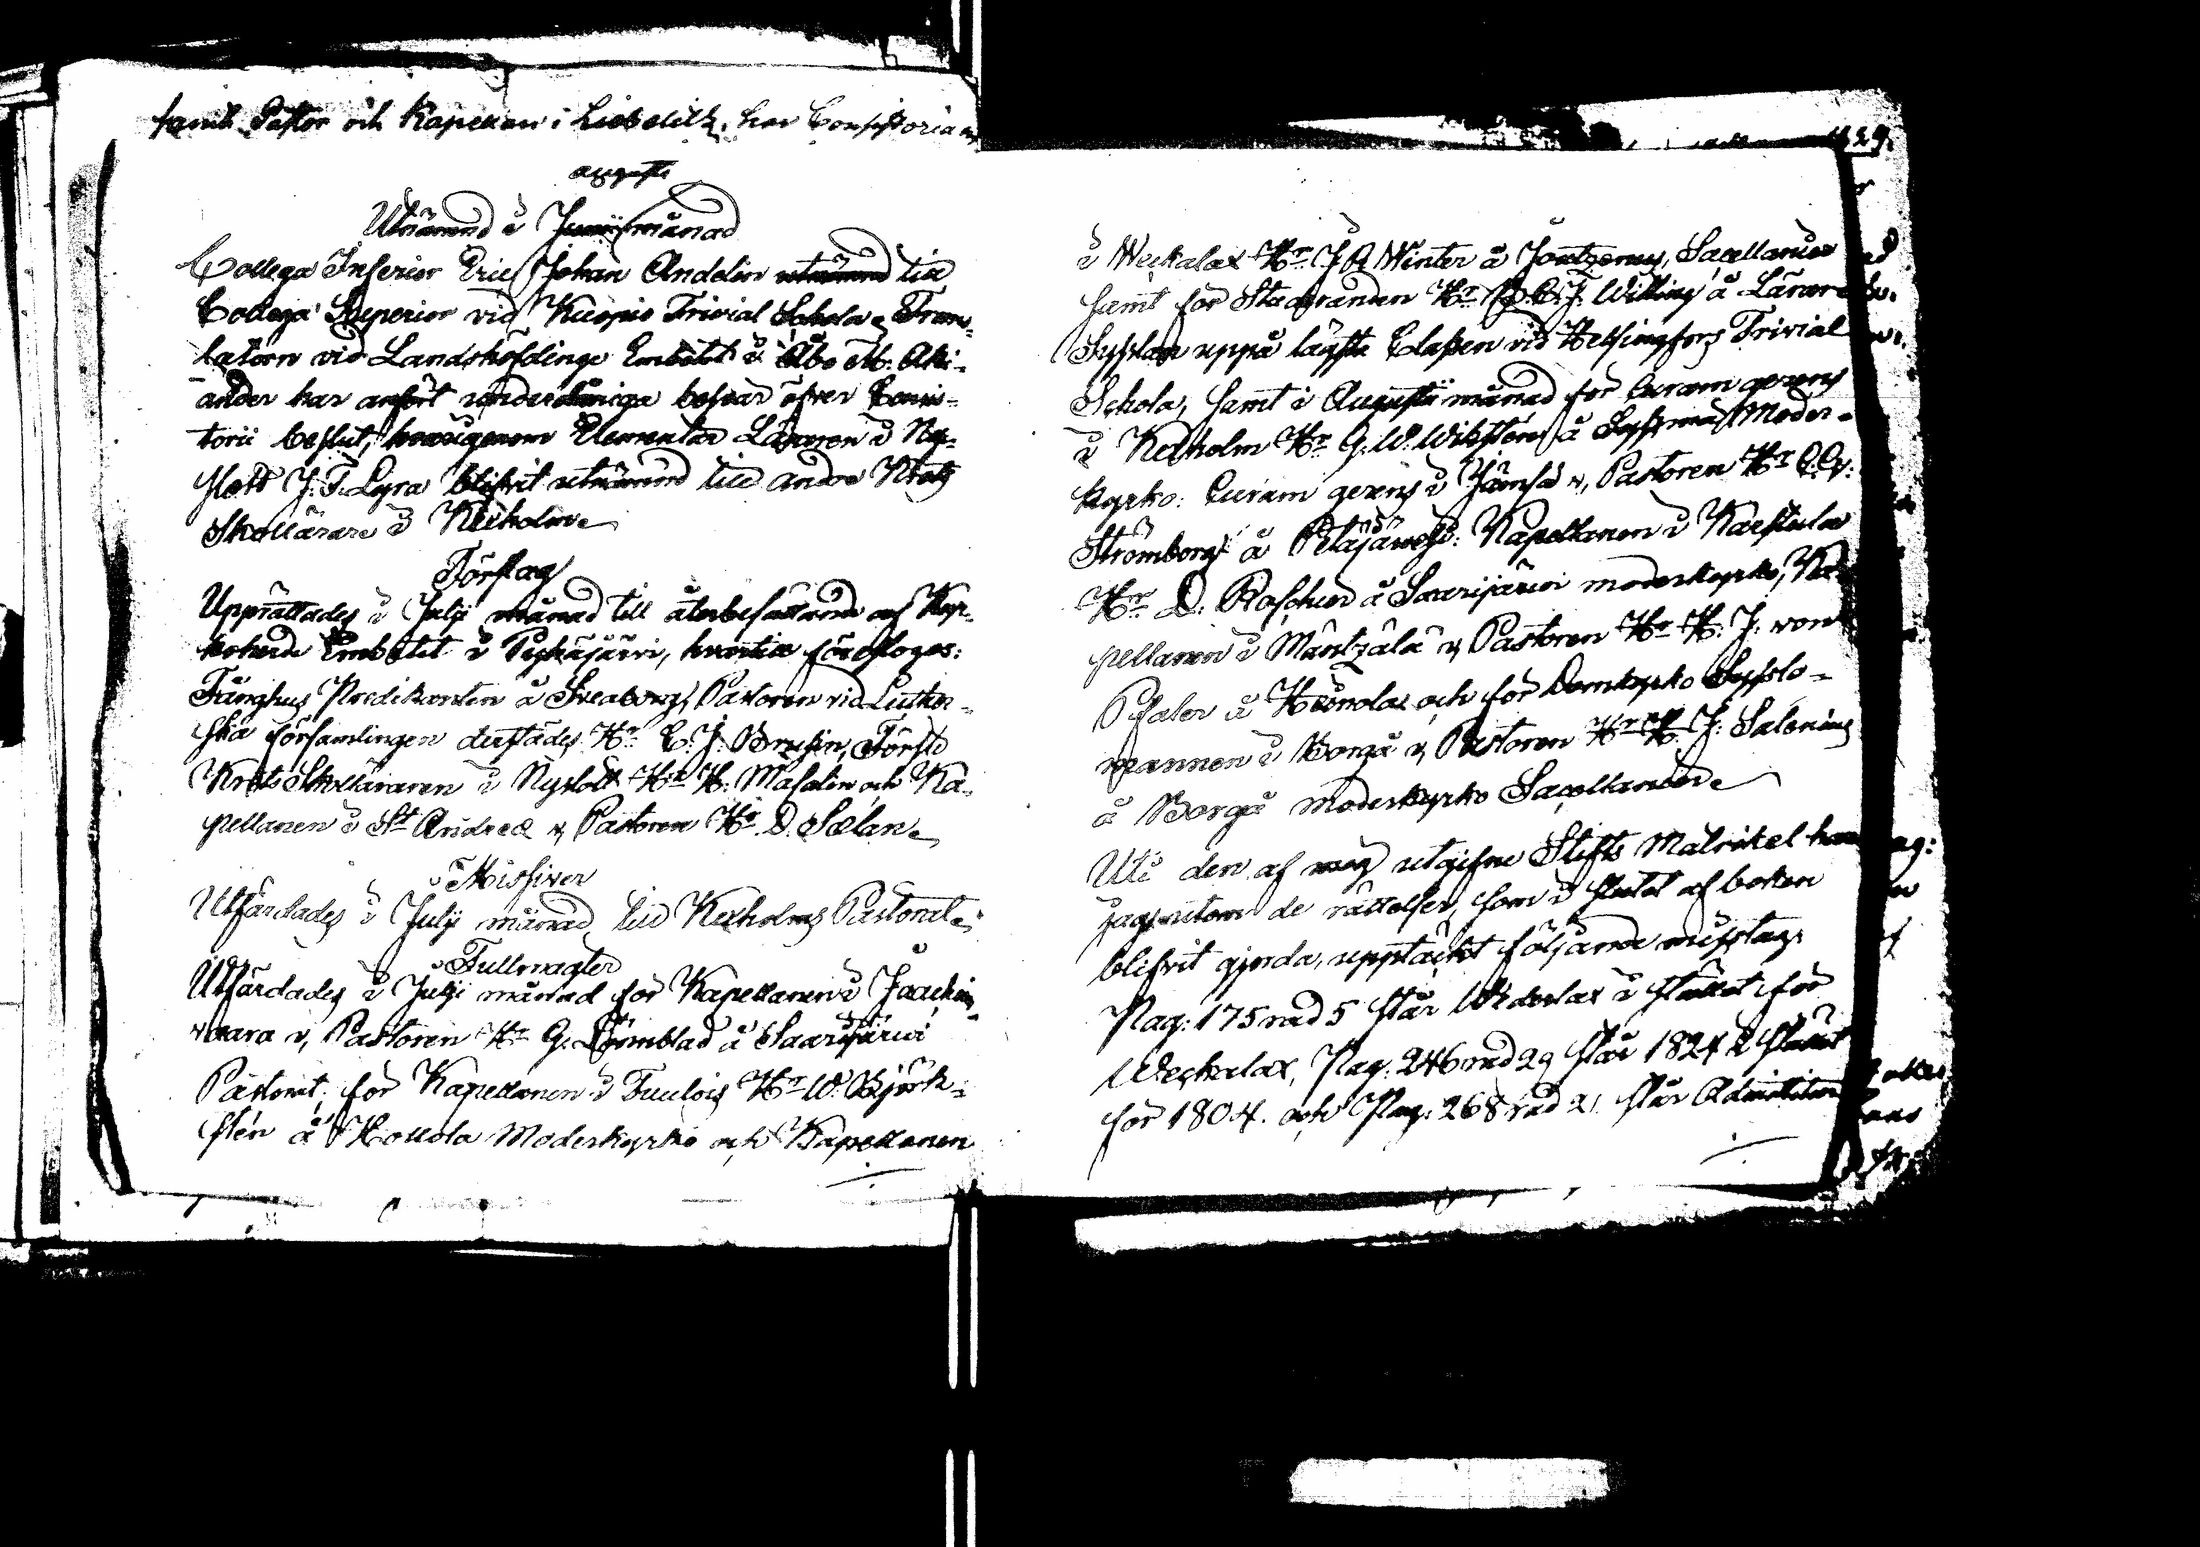 samt Pastor och Kapellan i Liebelitz, har Consistorium
augusti
Utnämnd i Junii månad
Collega Inferior Eric Johan Andelin utnämnd till
Collega Superior vid Kuopio Trivial Schola. Trans-
latorn vid Landshöfdinge Embetet i Åbo M. Aki-
ander har anfört underdåniga besvär öfver Consis-
torii beslut, hvarigenom Elementar Läraren i Ny-
slott J. F. Lyra blifvit utnämnd till andre Krets
Skollärare i Kexholm.
Förslag
Upprättades i Julji månad till återbesättande af Kyr-
koherde Embetet i Pyhäjärvi, hvartill föreslogos:
Fånghus Predikanten å Sveaborg, Pastoren vid Luther-
ska församlingen derstädes Hr. C. J. Brusin, Förste
Krets Skolläraren i Nyslott Hr. H. Masalin och Ka-
pellanen i St Andreæ v, Pastoren Hr. D. Sælan.
Missiver
Utfärdades i Julji månad till Kexholms Pastorat.
Fullmagter
Utfärdades i Julji månad för Kapellanen i Jaackim-
vaara v, Pastoren Hr G. Lönnblad å Saarijärvi
Pastorat, för Kapellanen i Tuulois Hr W. Björk-
stén å Hollola Moderkyrko och Kapellanen
i Weckelax Hr J A Winter å Joutzeno, Sacellanier
samt för Studeranden Hr C. F. Willing å Lärare
Sysslan uppå lägsta Classen vid Helsingfors Trivial
Schola, samt i Augusti månad för Curam gerens
i Kexholm Hr G. W. Wikstén å Sysmä Moder-
kyrko: Curam gerens i Jämsä v, Pastoren Hr C. G.
Strömborg å Petäjävesi: Kapellanen i Karstula
Hr D. Roschier å Saarijärvi moderkyrko, Ka-
pellanen i Mäntzälä v, Pastoren Hr H. J. von
Pfaler å Heinola och för Domkyrko Sysslo-
mannen i Borgå v, Pastoren Hr H. J. Salenius
å Borgå moderkyrko Sacellanier.
Uti den af mig utgifne Stifts Matrikel har
jag, utom de rättelser, som i slutet af boken
blifvit gjorda, upptäckt följande misstag:
Pag: 175 rad 5 står Widerlax i stället för
Weckelax, Pag. 246 rad 29 står 1824 i stället
för 1804. och Pag: 268 rad 21 står